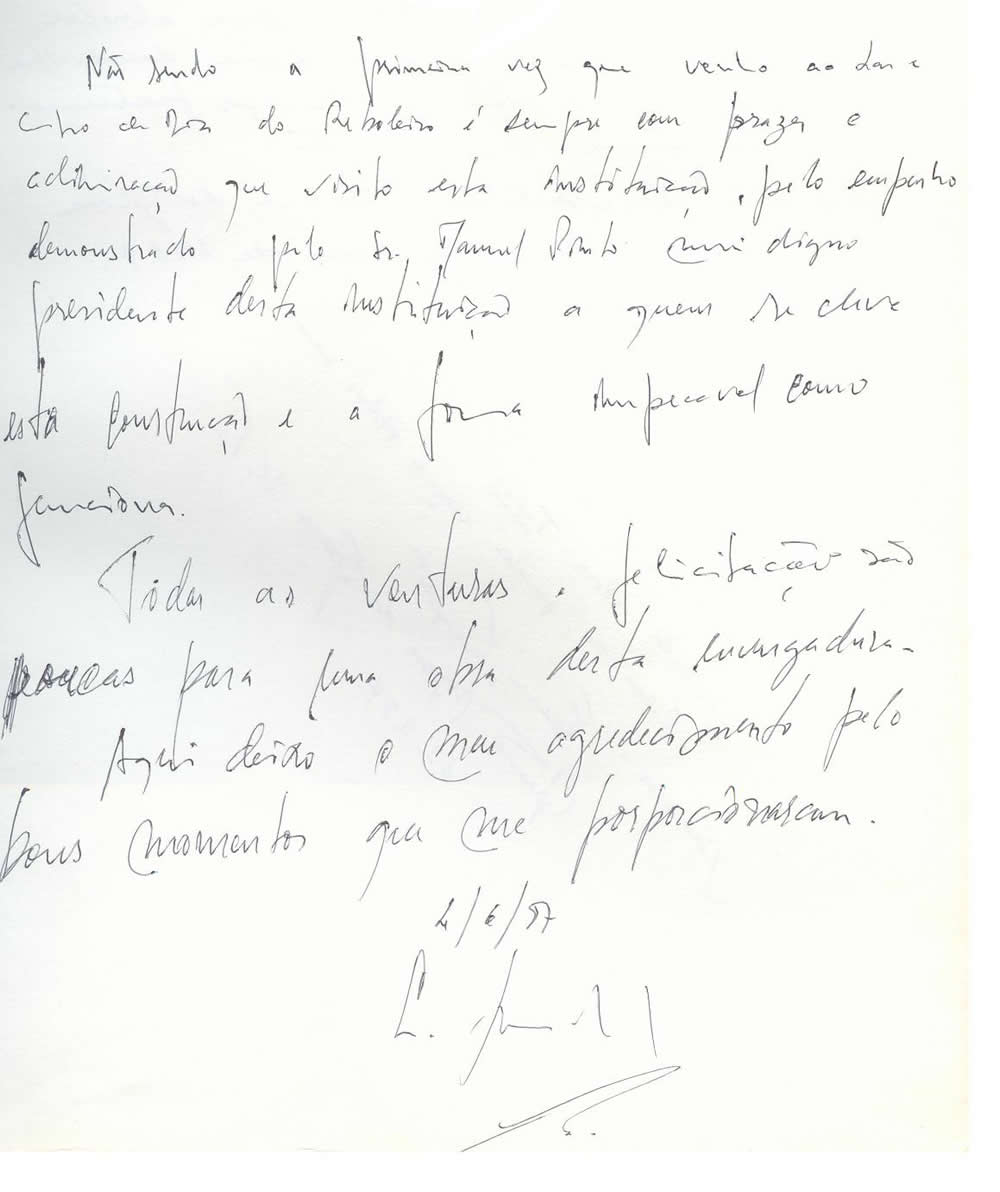 Não sendo a primeira vez que venho ao Lar e
Centro de Dia do Reboleiro é sempre com prazer e
admiração que visito esta instituição, pelo empenho
demonstrado pelo Sr. Manuel Pinto mui digno
presidente desta instituição a quem se deve
esta construção e a forma impecavel como
funciona.
Todas as venturas e felicitação são
poucas para uma obra desta envergadura.
Aqui deixo o meu agredecimento pelo
bons momentos que me porporcionaram.
/6/97
L.